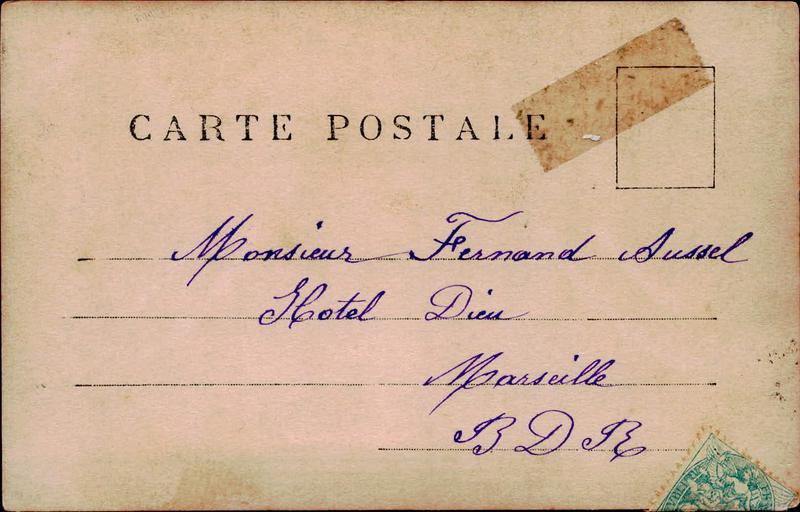 CARTE POSTALE
Monsieur Fernand Aussel
Hotel Dieu
Marseille
B D R